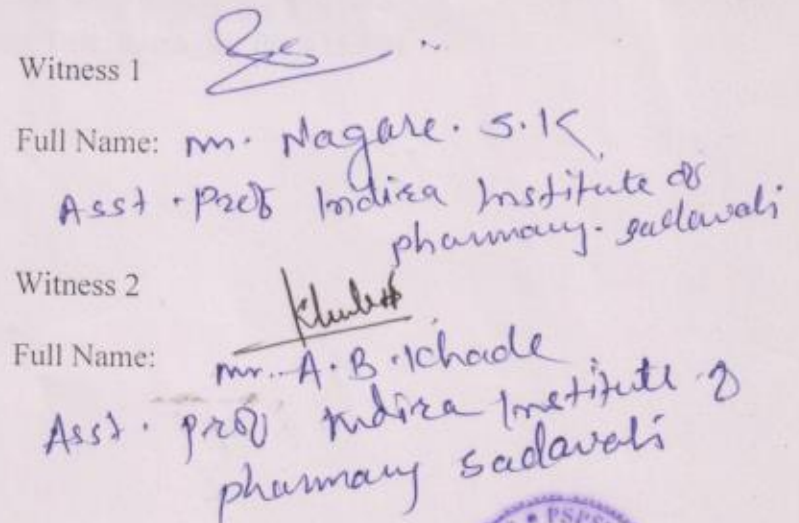 Witness 1
Full Name: Mr. Nagare. S.K
Asst. Prof Indira Institute of
pharmacy. sadavali
Witness 2
Full Name:
Mr. A.B. Khade
Asst. prof Indira Institute of
pharmacy sadavali
PSPS